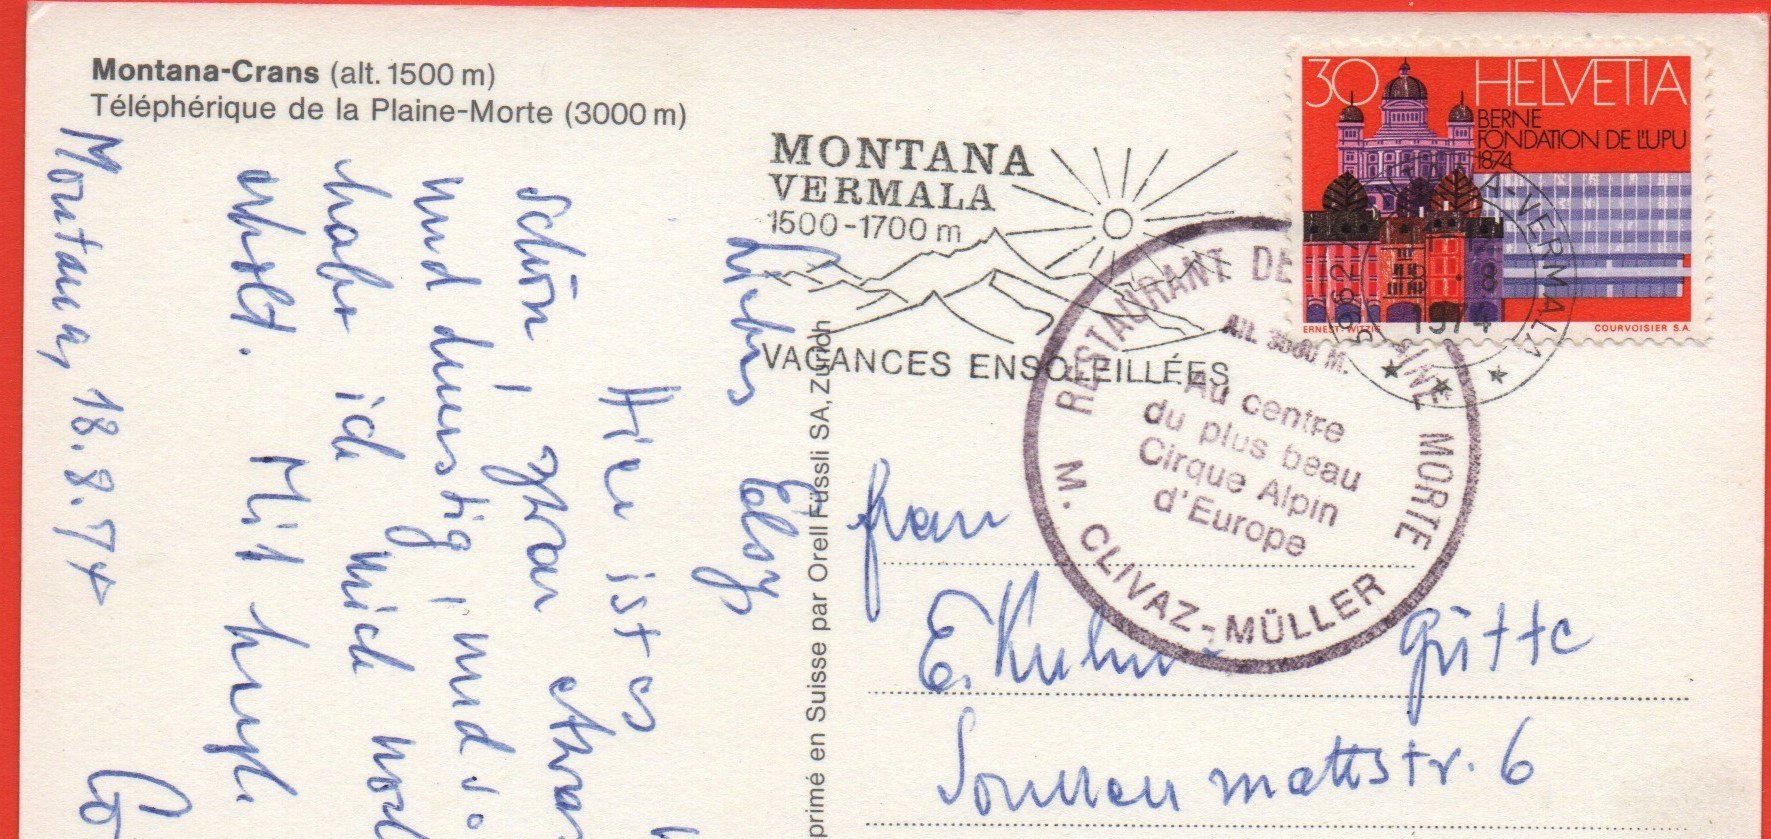 Montana-Crans (alt. 1500 m)
Téléphérique de la Plaine-Morte (3000 m)
MONTANA
VERMALA
1500-1700 m
VACANCES ENSOLEILLÉES
30 HELVETIA
BERNE
FONDATION DE L'UPU
1874
ERNEST WITZIG
COURVOISIER S.A.
3962 MONTANA-VERMALA
8
1974
RESTAURANT DE
MORTE
Alt. 3000 M.
Au centre
du plus beau
Cirque Alpin
d'Europe
M. CLIVAZ-MÜLLER
primé en Suisse par Orell Füssli SA, Zürich
Montana, 18.8.74
Hier ist es
schön, zwar etwas
und dunstig, und so
habe ich mich
erholt. Mit
Frau
E. Kuhn Gütte
Sonnenmattstr. 6